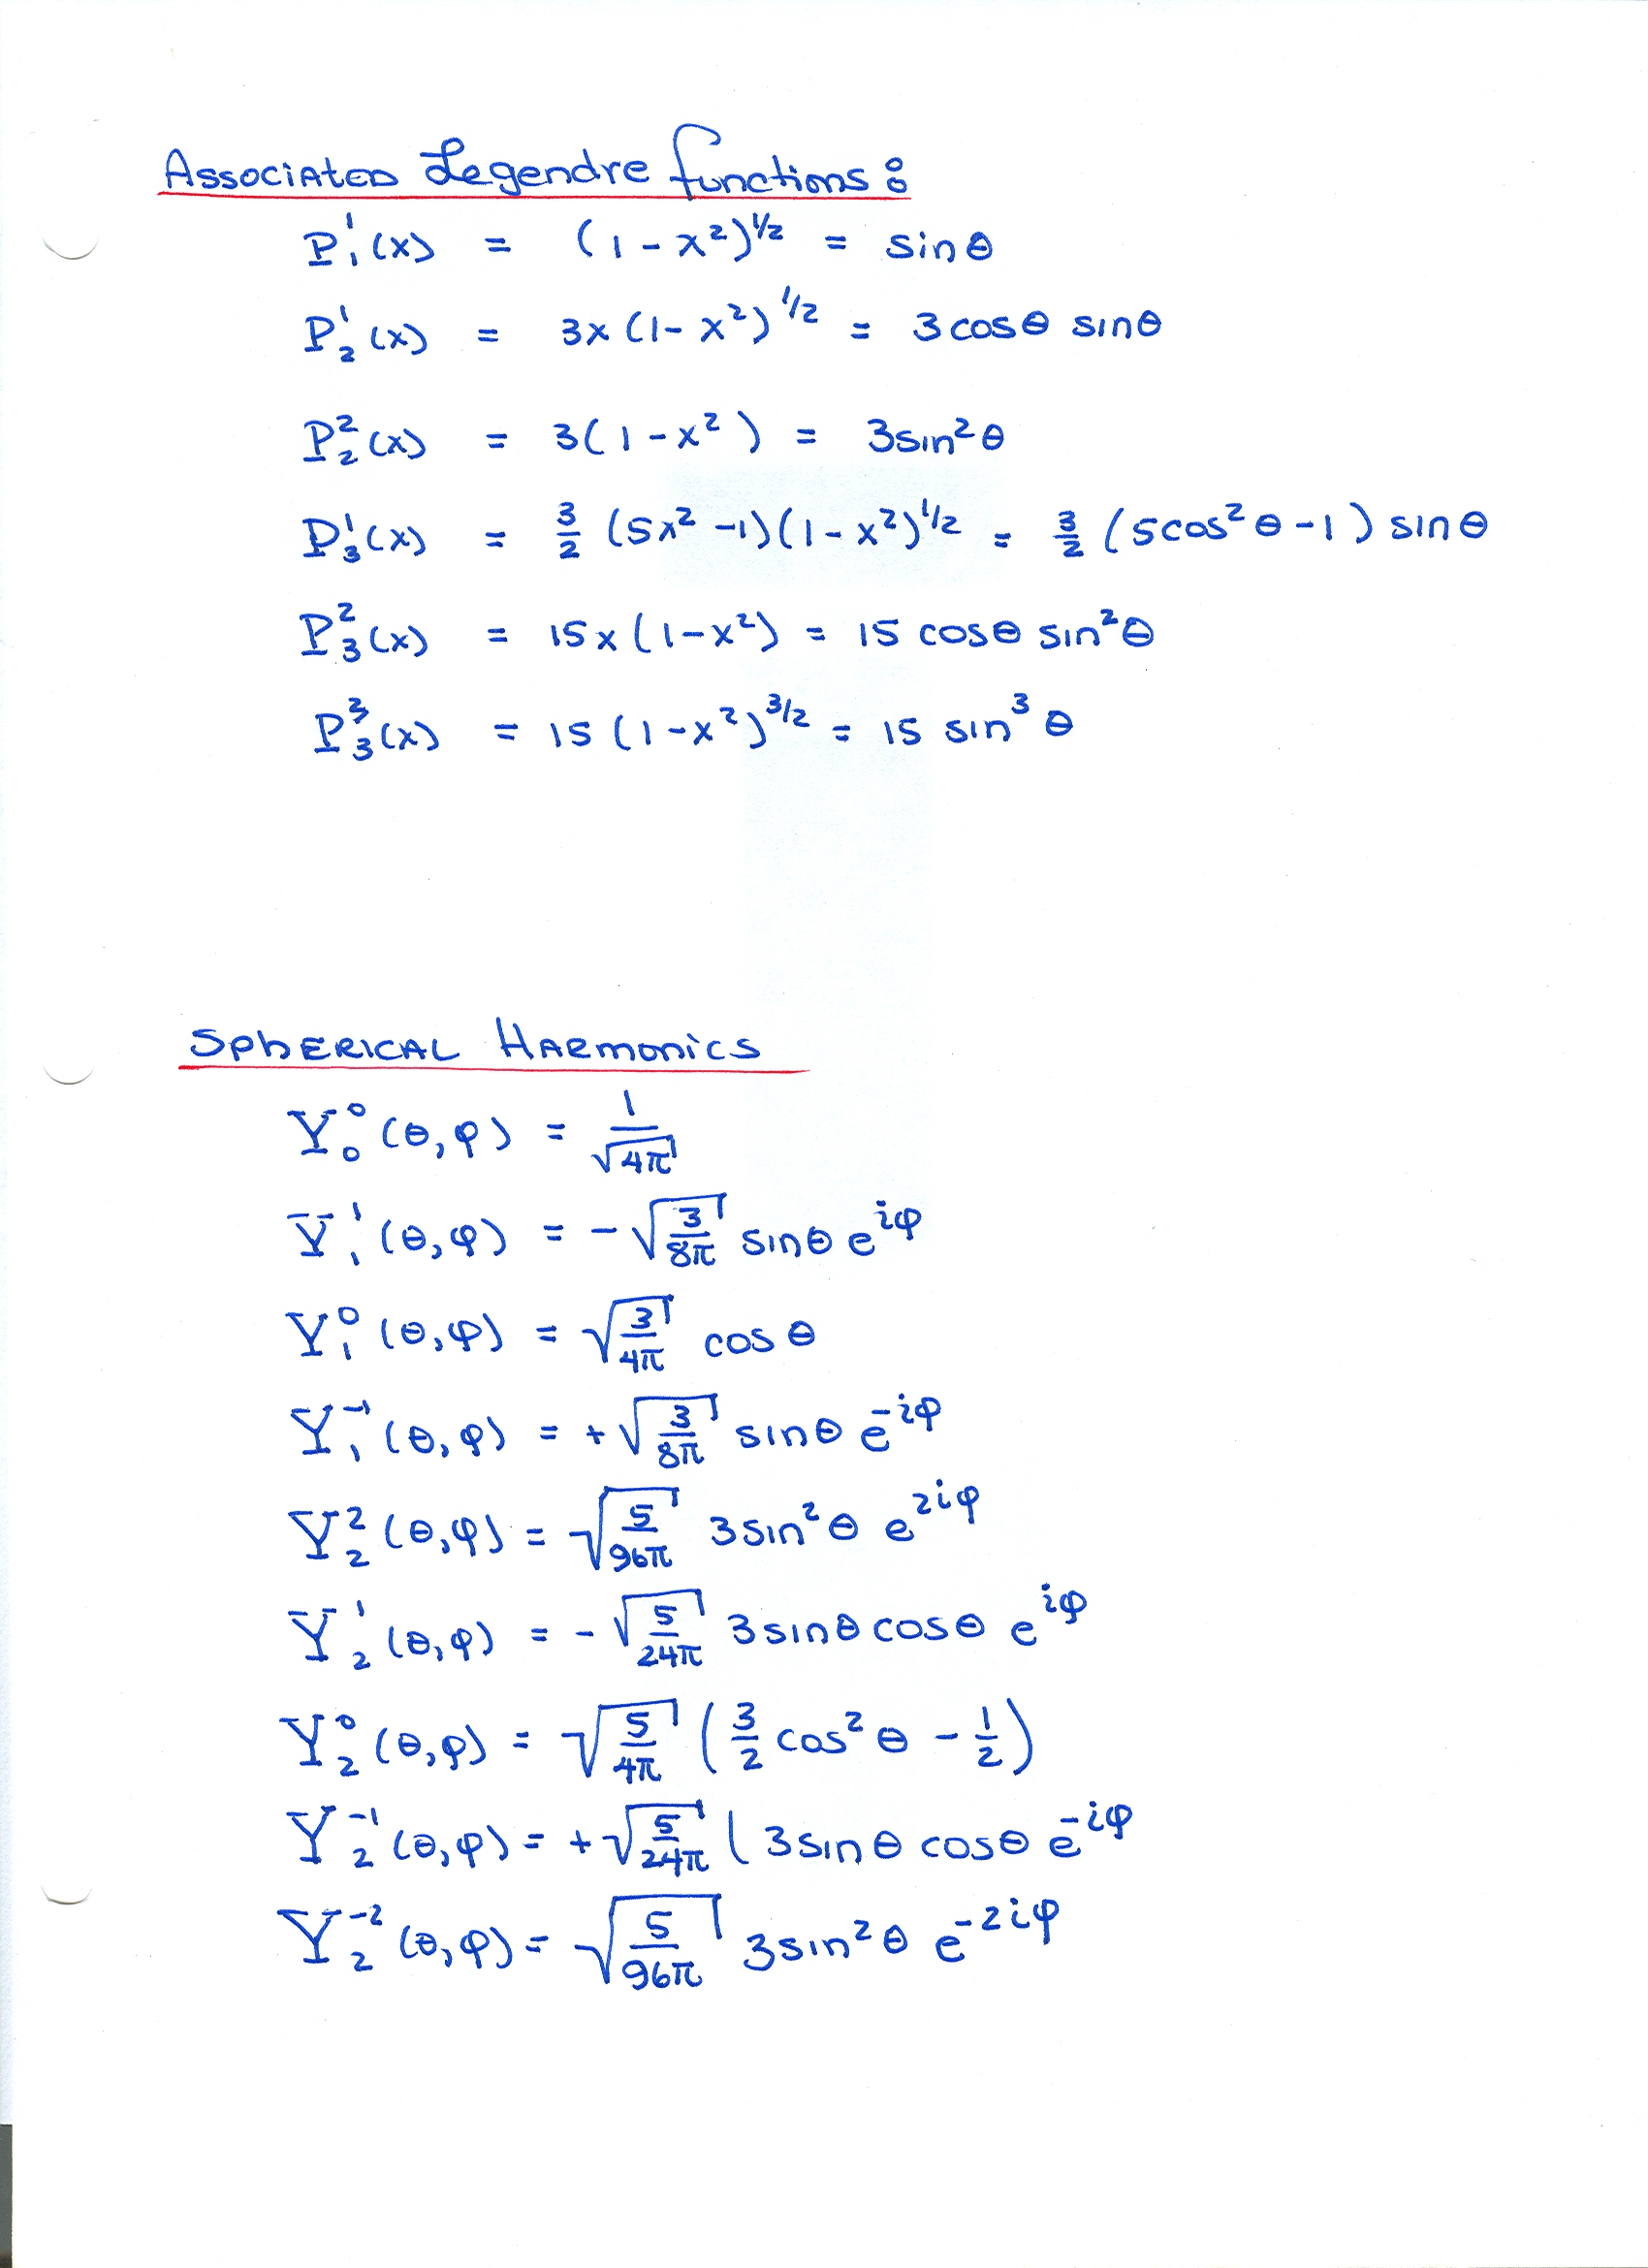 Associated Legendre functions:
P₁¹(x) = (1 - x²)^{1/2} = sin θ
P₂¹(x) = 3x (1 - x²)^{1/2} = 3 cos θ sin θ
P₂²(x) = 3(1 - x²) = 3 sin² θ
P₃¹(x) = 3/2 (5x² - 1)(1 - x²)^{1/2} = 3/2 (5 cos² θ - 1) sin θ
P₃²(x) = 15x (1 - x²) = 15 cos θ sin² θ
P₃³(x) = 15 (1 - x²)^{3/2} = 15 sin³ θ
SPhERICAL HARmonics
Y₀⁰(θ,φ) = 1/√(4π)
Y₁¹(θ,φ) = -√(3/8π) sin θ e^{iφ}
Y₁⁰(θ,φ) = √(3/4π) cos θ
Y₁⁻¹(θ,φ) = +√(3/8π) sin θ e^{-iφ}
Y₂²(θ,φ) = √(5/96π) 3 sin² θ e^{2iφ}
Y₂¹(θ,φ) = -√(5/24π) 3 sin θ cos θ e^{iφ}
Y₂⁰(θ,φ) = √(5/4π) (3/2 cos² θ - 1/2)
Y₂⁻¹(θ,φ) = +√(5/24π) ( 3 sin θ cos θ e^{-iφ}
Y₂⁻²(θ,φ) = √(5/96π) 3 sin² θ e^{-2iφ}